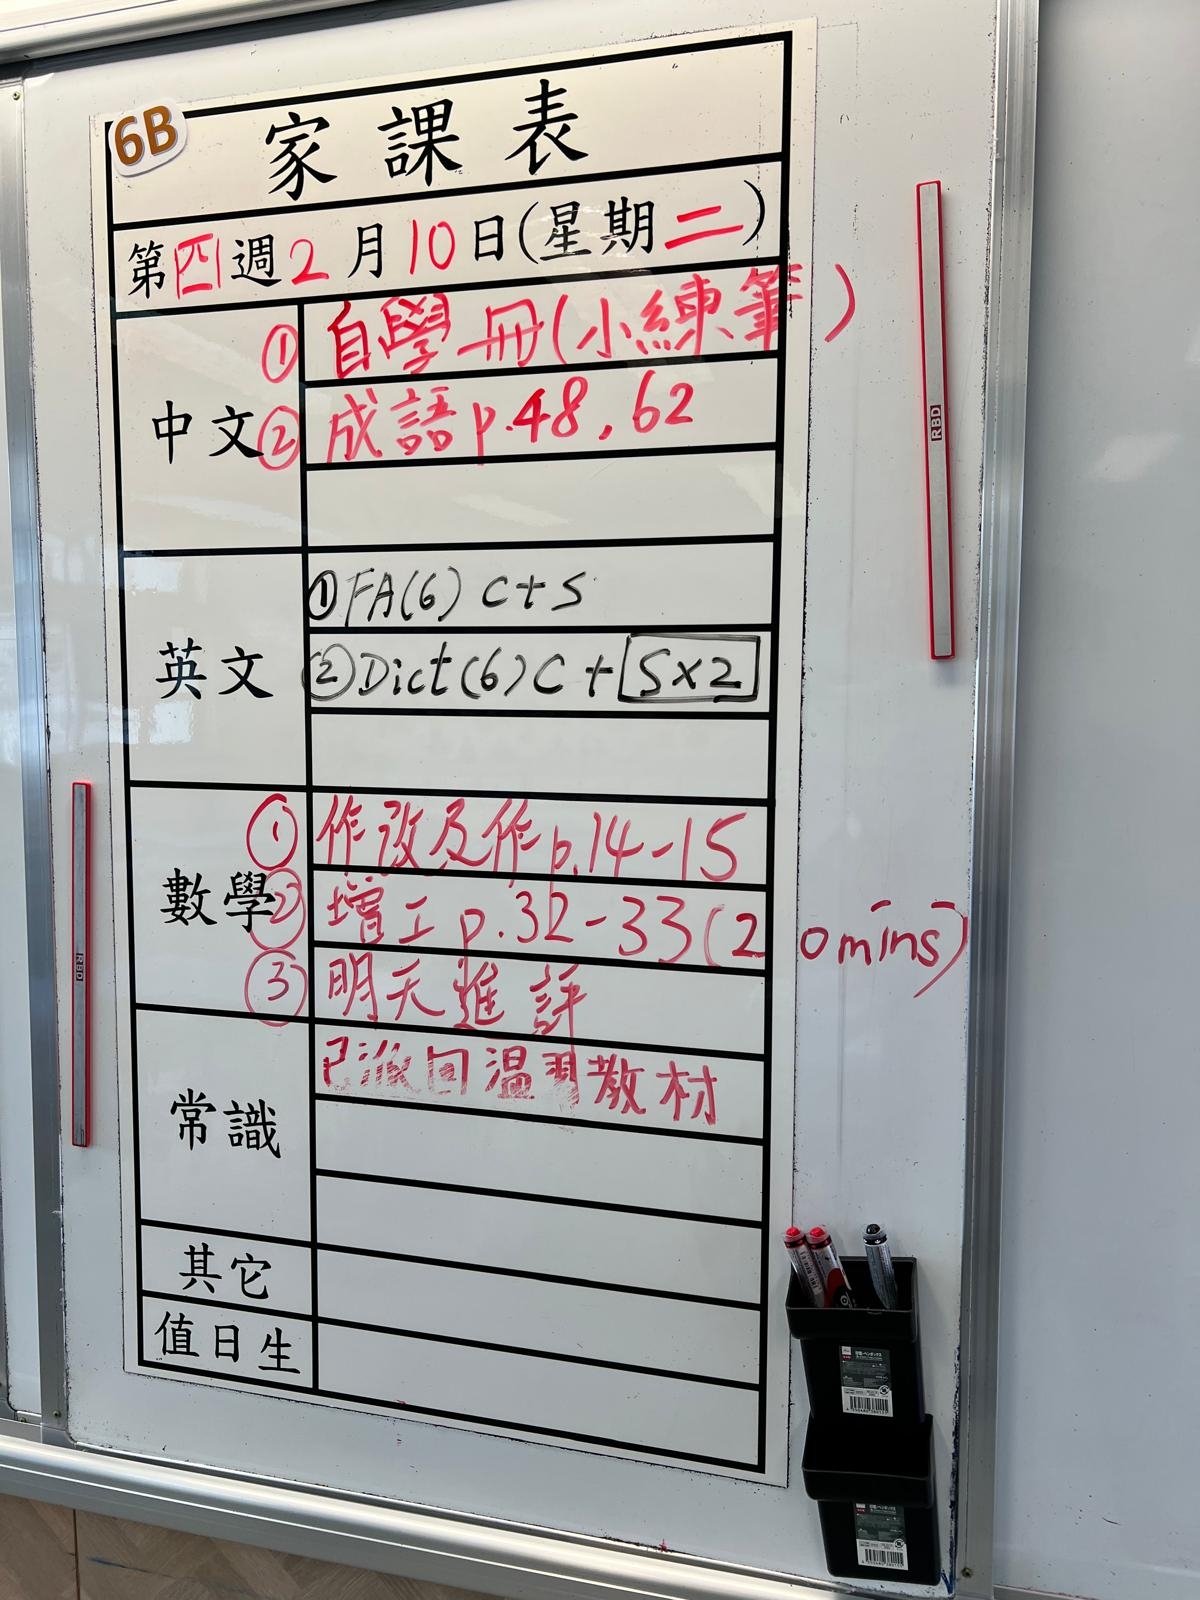 6B
家課表
第四週2月10日(星期二)
中文
① 自學冊(小練筆)
② 成語p.48, 62
英文
①FA(6) C+S
②Dict(6) C + S×2
數學
① 作改及作p.14-15
② 增工p.32-33(20mins)
③ 明天進評
常識
已派回温習教材
其它
值日生
RBD
RBD